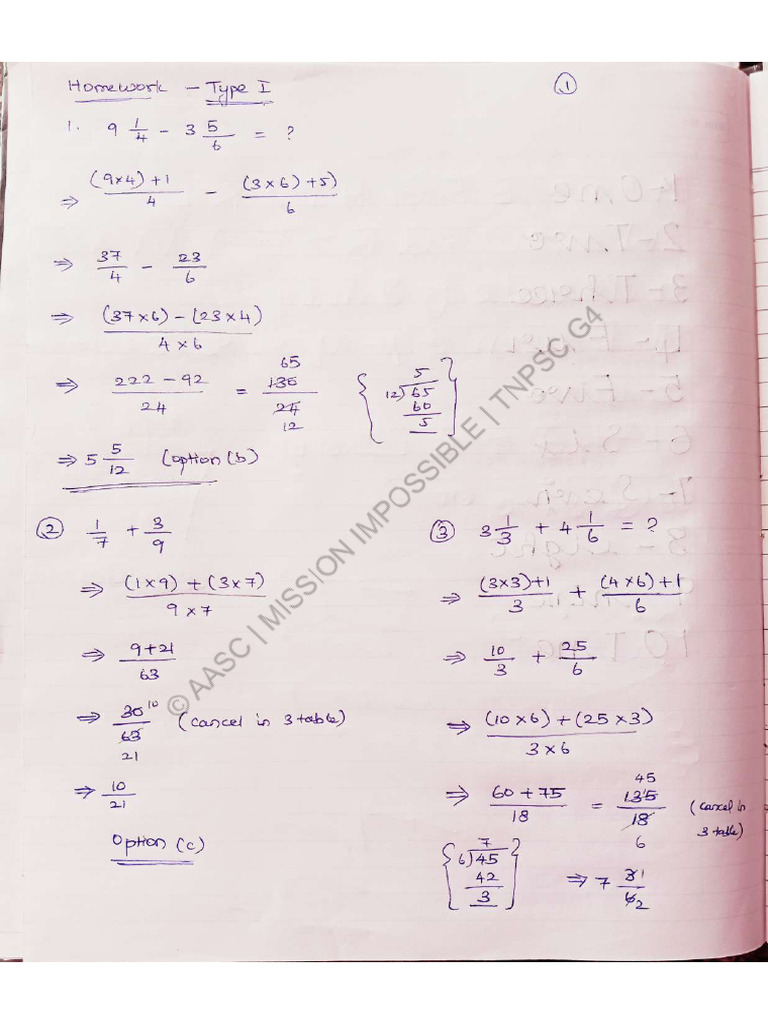 Homework – Type I
①
1. 9 1/4 – 3 5/6 = ?
⇒ (9×4)+1/4 – (3×6)+5)/6
⇒ 37/4 – 23/6
⇒ (37×6) – (23×4)/4×6
⇒ 222 – 92/24 = 65 130/24 12 { 12)65 5 60 5 }
⇒ 5 5/12 (option (b)
② 1/7 + 3/9
⇒ (1×9) + (3×7)/9×7
⇒ 9+21/63
⇒ 30 10/63 21 (cancel in 3 table)
⇒ 10/21
Option (c)
③ 3 1/3 + 4 1/6 = ?
⇒ (3×3)+1/3 + (4×6)+1/6
⇒ 10/3 + 25/6
⇒ (10×6) + (25×3)/3×6
⇒ 60+75/18 = 45 135/18 6 (cancel in
3 table)
{ 6)45 7 42 3 } ⇒ 7 3 1/6 2
© AASC | MISSION IMPOSSIBLE | TNPSC G4